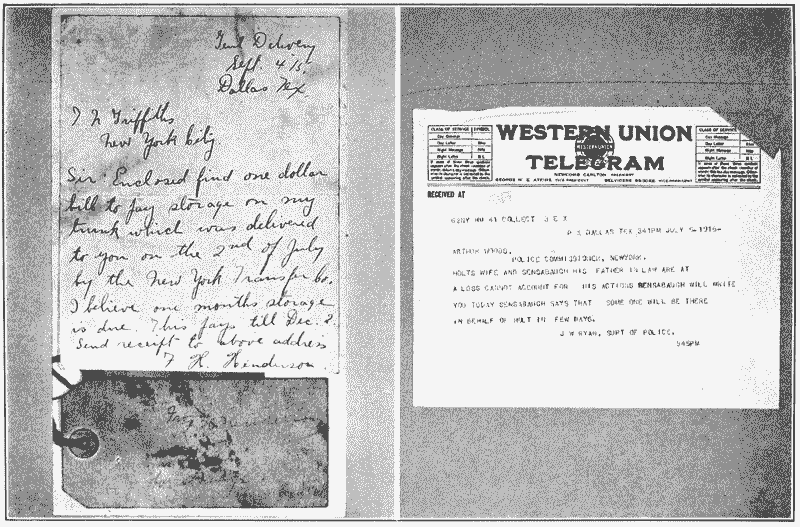 Genl Delivery
Sept. 4/15
Dallas Tex
T N Griffiths
New York City
Sir. Enclosed find one dollar
bill to pay storage on my
trunk which was delivered
to you on the 2nd of July
by the New York Transfer Co.
I believe one months storage
is due. This pays till Dec. 2.
Send receipt to above address
F. H. Henderson.
CLASS OF SERVICE SYMBOL
Day Message
Day Letter Blue
Night Message Nite
Night Letter N L
WESTERN UNION
WESTERN UNION
TELEGRAM
NEWCOMB CARLTON, PRESIDENT
GEORGE W. E. ATKINS, VICE-PRESIDENT BELVIDERE BROOKS, VICE-PRESIDENT
CLASS OF SERVICE
Day Message
Day Letter Blue
Night Message Nite
Night Letter N L
RECEIVED AT
62NY HU 61 COLLECT 3 EX
DALLAS TEX 341PM JULY 5-1915-
ARTHUR WOODS,
POLICE COMMISSIONER, NEWYORK.
HOLTS WIFE AND SENSABAUGH HIS FATHER IN LAW ARE AT
A LOSS CANNOT ACCOUNT FOR HIS ACTIONS SENSABAUGH WILL WRITE
YOU TODAY SENSABAUGH SAYS THAT SOME ONE WILL BE THERE
IN BEHALF OF HOLT IN FEW DAYS.
J W RYAN, SUPT OF POLICE.
545PM